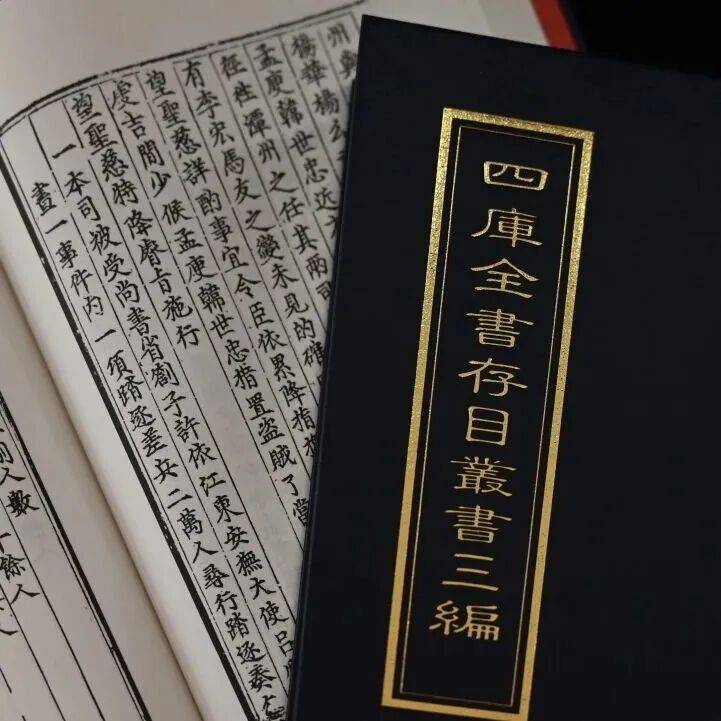 州
楊華楊
孟庾韓世忠近
任往潭州之任其兩司
有李宏馬友之變未見的確
望聖慈詳酌事宜令臣依累降指
虔吉間少候孟庾韓世忠措置盜賊了當
望聖慈特降睿旨施行
一本司被受尚書省劄子許依江東安撫大使呂
畫一事件內一項踏逐差兵二萬人尋行踏逐奏
人數
餘人
人
四庫全書存目叢書三編